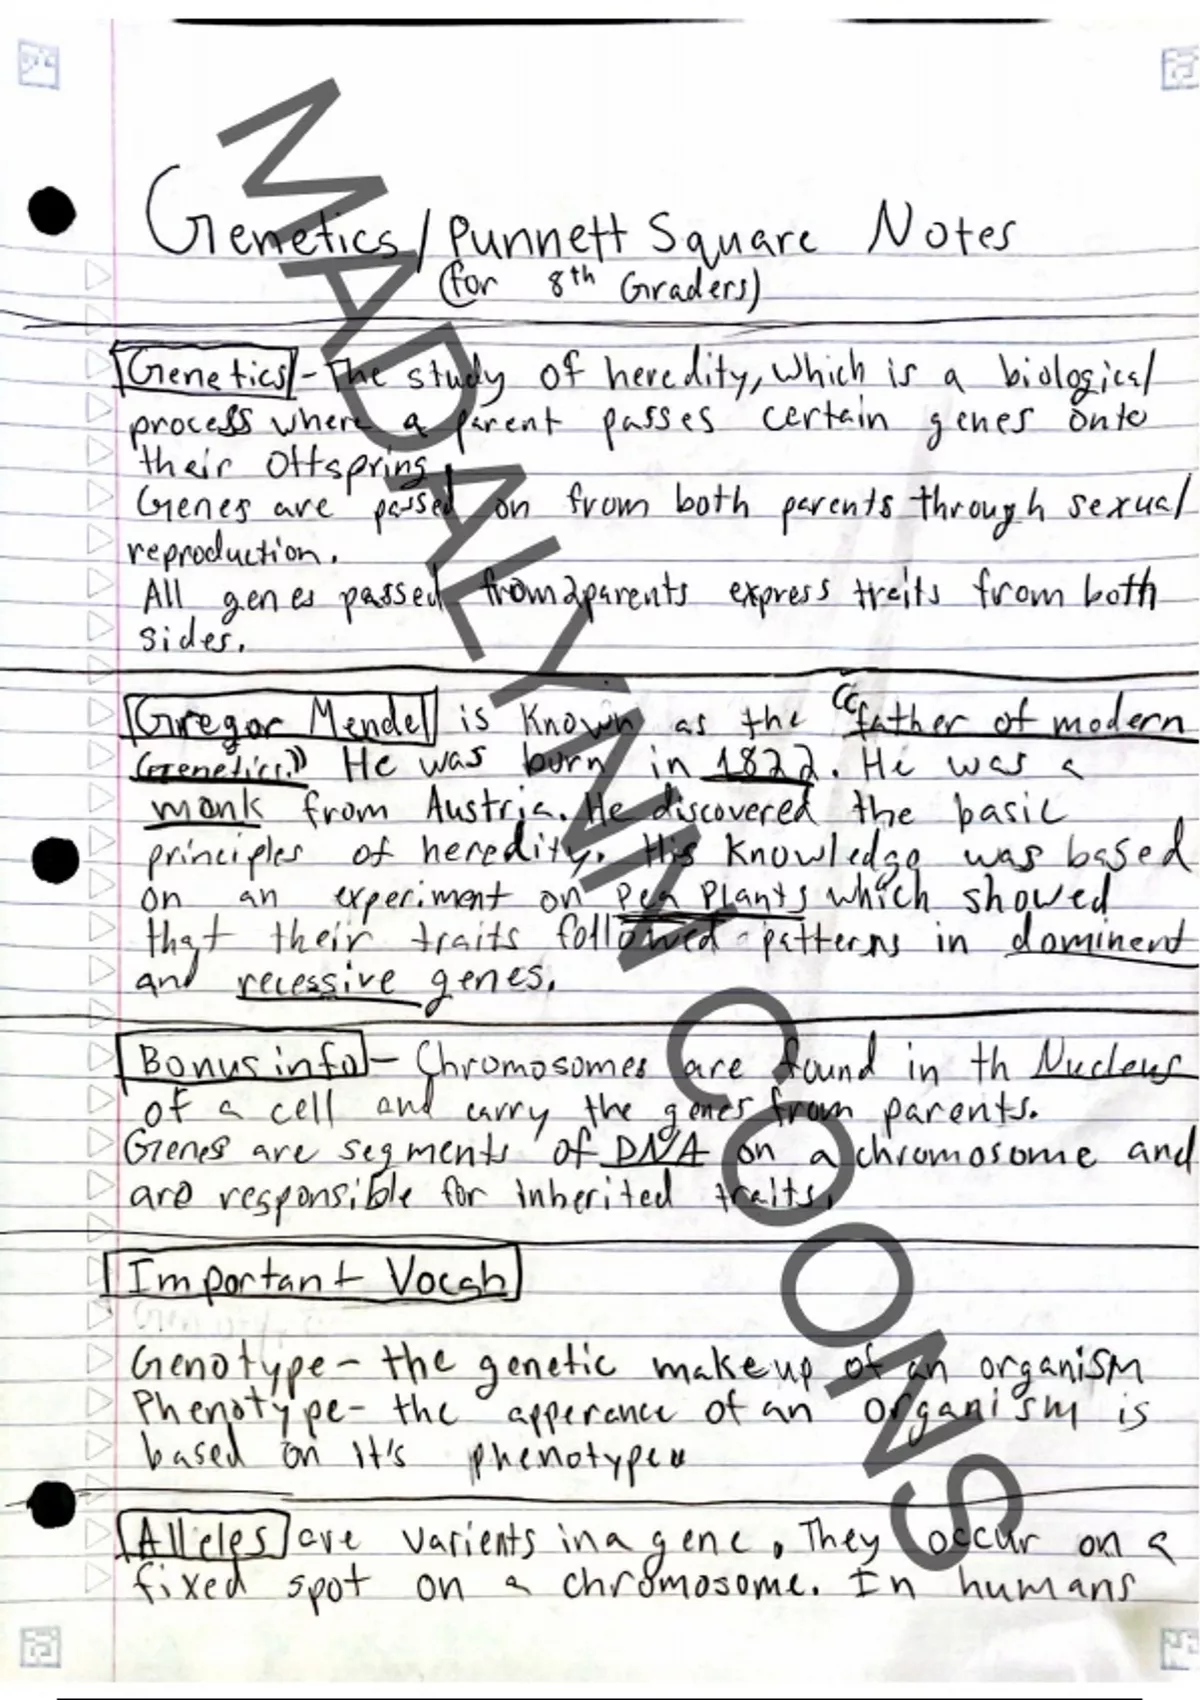 Genetics/Punnett Square Notes
(for 8th Graders)
Genetics - The study of heredity, which is a biological
process where a parent passes certain genes onto
their offspring.
Genes are passed on from both parents through sexual
reproduction.
All genes passed from 2 parents express traits from both
sides.
Gregor Mendel is known as the "father of modern
Genetics." He was born in 1822. He was a
monk from Austria. He discovered the basic
principles of heredity. His knowledge was based
on an experiment on Pea Plants which showed
that their traits followed patterns in dominent
and recessive genes.
Bonus info - Chromosomes are found in th Nucleus
of a cell and carry the genes from parents.
Genes are segments of DNA on a chromosome and
are responsible for inherited traits.
Important Vocab
Genotype - the genetic makeup of an organism
Phenotype - the apperance of an organism is
based on it's phenotype.
Alleles are varients in a gene. They occur on a
fixed spot on a chromosome. In humans
MADALYNN COONS